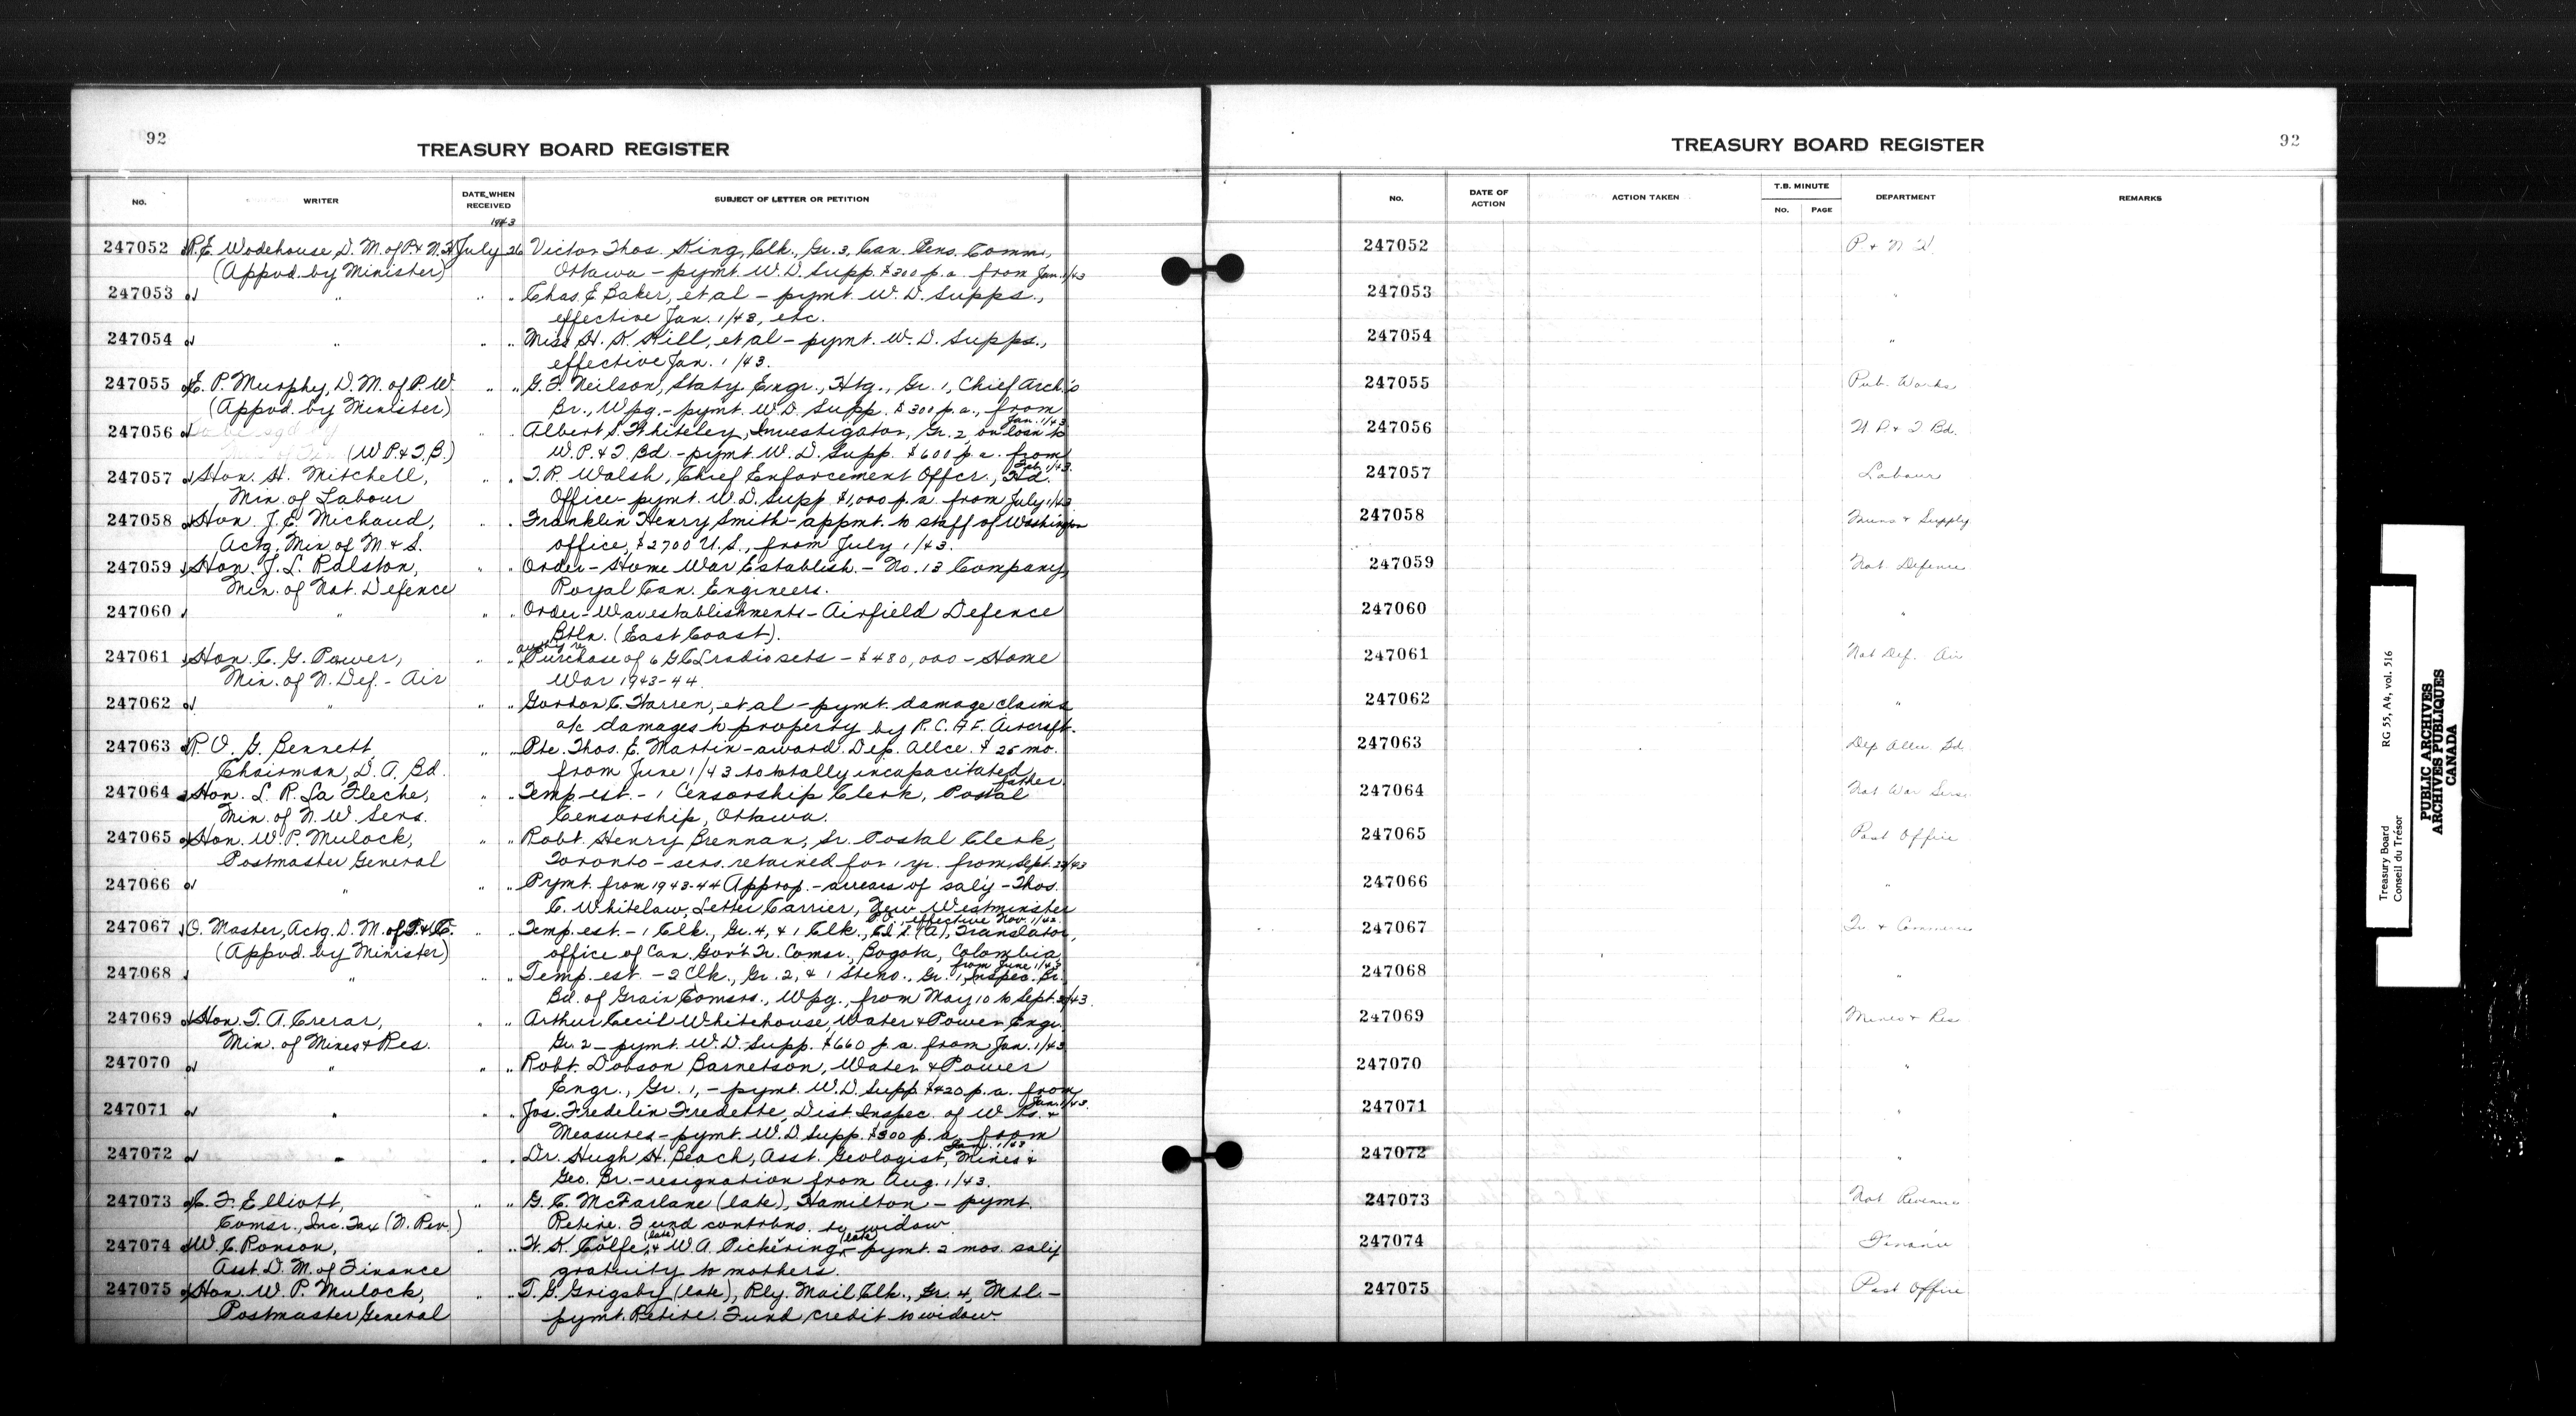 92
TREASURY BOARD REGISTER
No.
WRITER
DATE WHEN
RECEIVED
SUBJECT OF LETTER OR PETITION
1943
247052 R. E. Wodehouse, D. M. of P. & N. H. July 26 Victor Thos. King, Clk., Gr. 3, Can. Pens. Comm.,
(Appvd. by Minister) Ottawa - pymt. W. D. Supp. $300 p.a. from Jan. 1/43
247053 " " " Chas. E. Baker, et al - pymt. W. D. Supps.,
effective Jan. 1/43, etc.
247054 " " " Miss H. K. Hill, et al - pymt. W. D. Supps.,
effective Jan. 1/43.
247055 E. P. Murphy, D. M. of P. W. " " G. F. Neilson, Staty. Engr., Htg., Gr. 1, Chief Arch.'s
(Appvd. by Minister) Br., Wpg. - pymt. W. D. Supp. $300 p.a., from
Jan. 1/43
247056 " " Albert S. Whiteley, Investigator, Gr. 2, on loan to
(W. P. & T. B.) W. P. & T. Bd. - pymt. W. D. Supp. $600 p.a. from
1/43.
247057 Hon. H. Mitchell, " " T. R. Walsh, Chief Enforcement Offcr., Hd.
Min. of Labour Office - pymt. W. D. Supp. $1,000 p.a. from July 1/43
247058 Hon. J. E. Michaud, " " Franklin Henry Smith - appmt. to staff of Washington
Actg. Min. of M. & S. office, $2700 U.S., from July 1/43.
247059 Hon. J. L. Ralston, " " Order - Home War Establish. - No. 13 Company,
Min. of Nat. Defence Royal Can. Engineers.
247060 " " " Order - War establishments - Airfield Defence
Btln. (East Coast).
247061 Hon. C. G. Power, " " Purchase of 6 GCL radio sets - $480,000 - Home
Min. of N. Def. - Air War 1943-44.
247062 " " " Gordon C. Warren, et al - pymt. damage claims
a/c damages to property by R. C. A. F. Aircraft.
247063 R. O. G. Bennett, " " Pte. Thos. E. Martin - award. Dep. Allce. $25 mo.
Chairman, D. A. Bd. from June 1/43 to totally incapacitated
father.
247064 Hon. L. R. La Fleche, " " Temp est. - 1 Censorship Clerk, Postal
Min. of N. W. Servs. Censorship, Ottawa.
247065 Hon. W. P. Mulock, " " Robt. Henry Brennan, Sr. Postal Clerk,
Postmaster General Toronto - servs. retained for 1 yr. from Sept. 22/43
247066 " " " Pymt. from 1943-44 Approp. - arrears of sal'y - Thos.
C. Whitelaw, Letter Carrier, New Westminster
effective Nov. 1/42.
247067 O. Master, Actg. D. M. of T. & C. " " Temp. est. - 1 Clk., Gr. 4, & 1 Clk., (A), Translator,
(Appvd. by Minister) office of Can. Gov't Tr. Comsr., Bogota, Colombia,
from June 1/43
247068 " " " Temp. est. - 2 Clk., Gr. 2, & 1 Steno., Gr. 1, Inspec. Br.
Bd. of Grain Comsrs., Wpg., from May 10 to Sept. 30/43.
247069 Hon. T. A. Crerar, " " Arthur Cecil Whitehouse, Water & Power Engr.
Min. of Mines & Res. Gr. 2 - pymt. W. D. Supp. $660 p.a. from Jan. 1/43
247070 " " " Robt. Dobson Barnetson, Water & Power
Engr., Gr. 1, - pymt. W. D. Supp. $420 p.a. from
Jan. 1/43.
247071 " " " Jos. Fredelin Fredette, Dist. Inspec. of W'ts. &
Measures - pymt. W. D. Supp. $300 p.a. from
Jan. 1/43
247072 " " " Dr. Hugh H. Beach, Asst. Geologist, Mines &
Geo. Br. - resignation from Aug. 1/43.
247073 C. F. Elliott, " " G. C. McFarlane (late), Hamilton - pymt.
Comsr., Inc. Tax (N. Rev.) Retire. Fund contrbns. to widow
247074 W. C. Ronson, " " H. K. Colfe (late) & W. A. Pickering (late) - pymt. 2 mos. sal'y
Asst. D. M. of Finance gratuity to mothers.
247075 Hon. W. P. Mulock, " " T. G. Grigsby (late), Rly. Mail Clk., Gr. 4, Mtl. -
Postmaster General pymt. Retire. Fund credit to widow.
TREASURY BOARD REGISTER
92
No.
DATE OF
ACTION
ACTION TAKEN
T.B. MINUTE
No.
PAGE
DEPARTMENT
REMARKS
247052 P. & N. H.
247053 "
247054 "
247055 Pub. Works
247056 W. P. & T. Bd.
247057 Labour
247058 Muns & Supply
247059 Nat. Defence
247060 "
247061 Nat Def. Air
247062 "
247063 Dep Allce Bd.
247064 Nat War Servs
247065 Post Office
247066 "
247067 Tr & Commerce
247068 "
247069 Mines & Res
247070 "
247071 "
247072 "
247073 Nat Revenue
247074 Finance
247075 Post Office
Treasury Board
Conseil du Trésor
RG 55, A4, vol. 516
PUBLIC ARCHIVES
ARCHIVES PUBLIQUES
CANADA